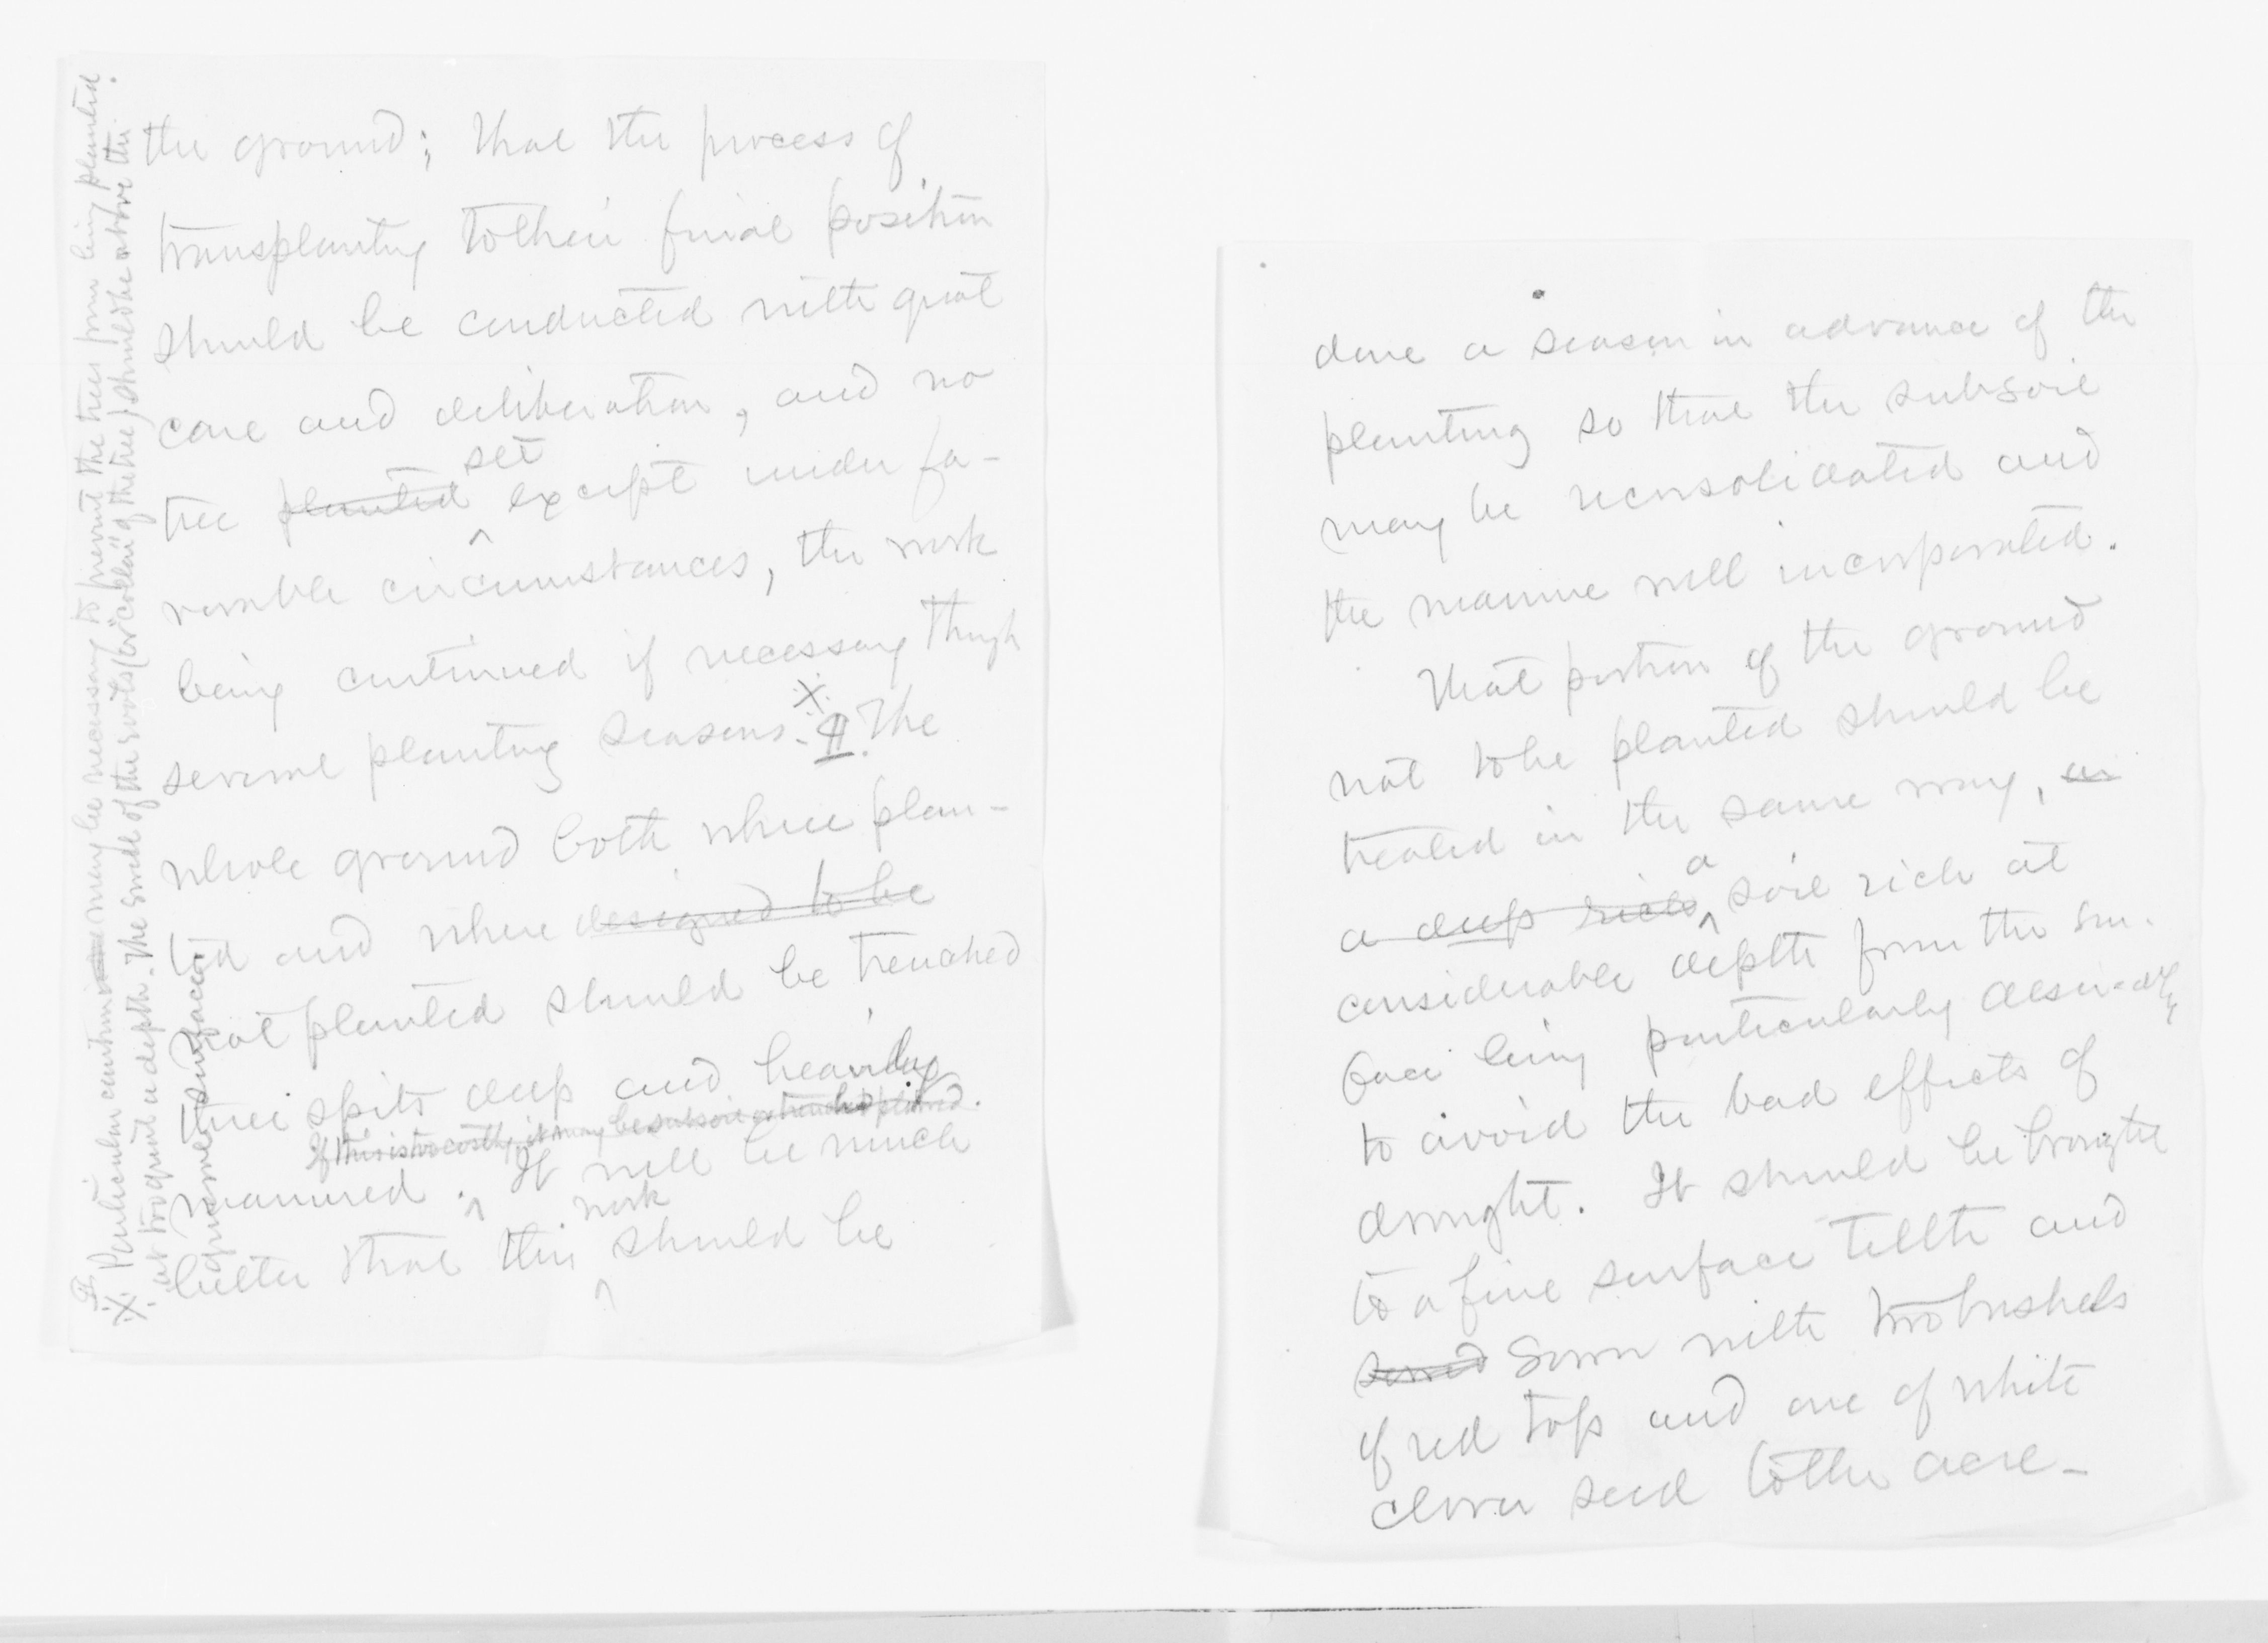 the ground; that the process of
transplanting to their final position
should be conducted with great
care and deliberation, and no
tree planted set except under fa-
vorable circumstances, the work
being continued if necessary though
several planting seasons. ※ ¶. The
whole ground both where plan-
ted and where designed to be
not planted should be trenched
three spits deep and heavily
If this is too costly, it may be subsoil or trench plowed.
manured. It will be much
better that this work should be
※ Particular caution may be necessary to prevent the trees from being planted
at too great a depth. The swell of the roots (or "collar" of the tree) should be above the
general surface.
done a season in advance of the
planting so that the subsoil
may be reconsolidated and
the manure well incorporated.
That portion of the ground
not to be planted should be
treated in the same way,
a deep rich a soil rich at
considerable depth from the sur-
face being particularly desirable
to avoid the bad effects of
drought. It should be brought
to a fine surface tilth and
sowed Sown with two bushels
of red top and one of white
clover seed to the acre-